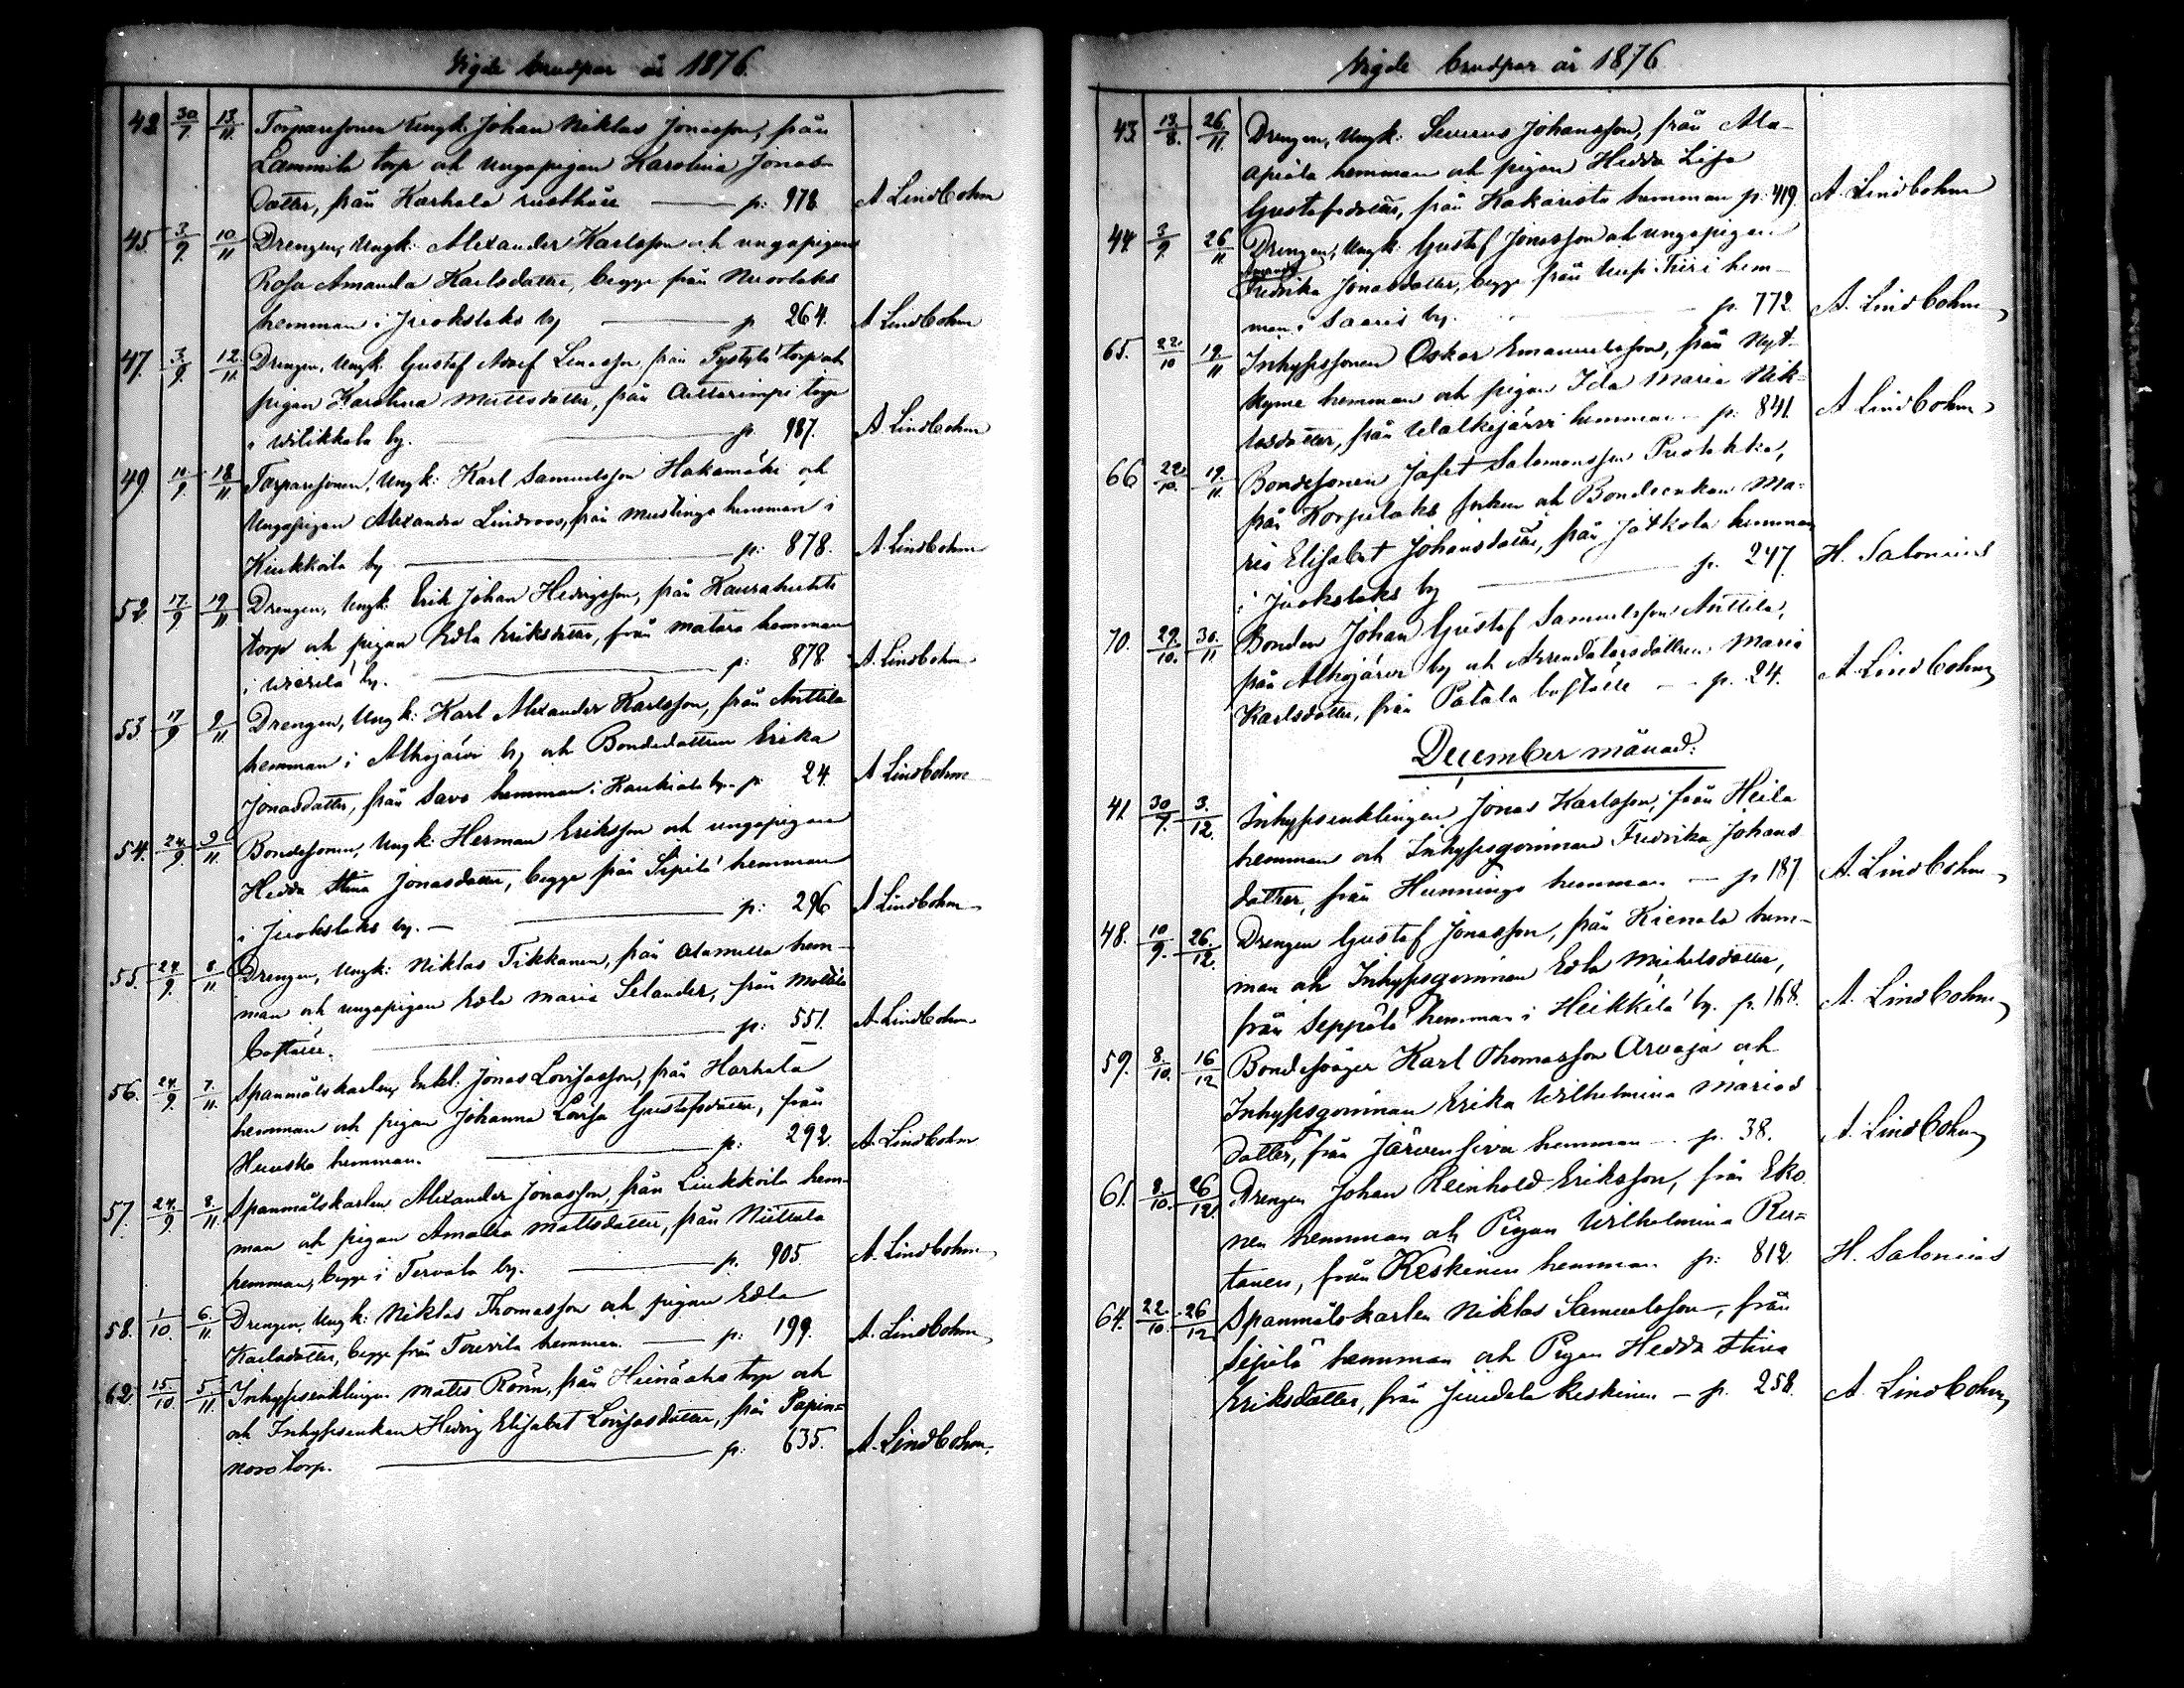 Vigde brudpar år 1876.
42 30/7 13/11 Torparesonen Ungk. Johan Niklas Jonasson, från
Lammila torp och Ungapigan Karolina Jonas-
dotter, från Karhala rusthåll — p: 978 A Lindbohm
45 3/9 10/11 Drengen, Ungk: Alexander Karlsson och ungapigan
Rosa Amanda Karlsdotter, begge från
hemman i Jvokslaks by — p 264. A Lindbohm
47. 3/9. 12/11. Drengen, Ungk. Gustaf Adolf från torp och
pigan Karolina Mattsdotter, från torp
i Wilikkala by. — p 987. A Lindbohm
49. 10/9. 18/11 Torparesonen, Ungk: Karl Samuelsson Hakamäki och
Ungapigan Alexandra Lindroos, från Mustinga hemman i
Kiukkoila by — p: 878. A. Lindbohm
52 17/9 19/11 Drengen, Ungk: Erik Johan Hedvigsson, från Kaurahuhta
torp och pigan Edla Eriksdotter, från Matara hemman
i by. — p: 878. A. Lindbohm
53. 17/9 9/11 Drengen, Ungk: Karl Alexander Karlsson, från Anttila
hemman i Alhojärvi by och Bondedottren Erika
Jonasdotter, från Savo hemman i by p 24. A Lindbohm
54. 24/9 9/11. Bondesonen, Ungk: Herman Eriksson och ungapigan
Hedda Stina Jonasdotter, begge från Sipilä hemman
i Jvokslaks by. — p: 296 A Lindbohm
55. 24/9. 8/11 Drengen, Ungk: Niklas Tikkanen, från hem-
man och ungapigan Edla Maria Selander, från
boställe. — p: 551. A. Lindbohm
56. 24/9. 7/11. Spanmålskarlen, Enkl: Jonas Lovisasson, från Harhala
hemman och pigan Johanna Lovisa Gustafsdotter, från
hemman. — p: 292. A. Lindbohm
57. 24/9 8/11. Spanmålskarlen Alexander Jonasson, från Liukkoila hem-
man och pigan Amalia Mattsdotter, från
hemman, begge i Tervala by. — p. 905. A. Lindbohm
58. 1/10. 6/11 Drengen, Ungk: Niklas Thomasson och pigan Edla
Karlsdotter, begge från hemman — p: 199. A. Lindbohm
62. 15/10 5/11. Inhysesenklingen Matts från Heinäaho torp och
och Inhysesenkan Hedvig Elisabet Lovisasdotter, från Papin-
noro torp. — p: 635. A. Lindbohm.
Vigde brudpar år 1876
43 13/8. 26/11. Drengen, Ungk: Severus Johansson, från Ala-
hemman och pigan Hedda Lisa
Gustafsdotter, från Kakaristo hemman p: 419. A. Lindbohm
44. 3/9. 26/11. Drengen, Ungk: Gustaf Jonasson och ungapigan
Amanda
Fredrika Jonasdotter, begge från hem-
man i Saaris by. — p. 772. A. Lindbohm
65. 22/10 19/11 Inhysessonen Oskar Emanuelsson, från Nyt-
kyme hemman och pigan Ida Maria Nik-
lasdotter, från Walkejärvi hemman — p: 841. A Lindbohm
66 22/10. 19/11. Bondesonen Jafet Salomonsson
från Korpilaks och Bondeenkan Ma-
ria Elisabet Johansdotter, från Jätkola hemman
i Jvokslaks by — p. 247. H. Salonius
70. 29/10. 30/11 Bonden Johan Gustaf Samuelsson Anttila,
från Alhojärvi by och Arrendatorsdottren Maria
Karlsdotter, från Patala boställe — p. 24. A. Lindbohm
December månad:
41 30/7. 3/12. Inhysesenklingen Jonas Karlsson, från Heila
hemman och Inhysesqvinnan Fredrika Johans
dotter, från Hunninge hemman — p 187 A. Lindbohm
48. 10/9. 26/12. Drengen Gustaf Jonasson, från hem-
man och Inhysesqvinnan Edla Michelsdotter,
från Seppälä hemman i Heikkilä by. p. 168. A. Lindbohm
59. 8/10. 16/12 Bondesåger Karl Thomasson Arvaja och
Inhysesqvinnan Erika Wilhelmina Marias
dotter, från Järvensivu hemman — p. 38. A. Lindbohm
61. 8/10. 26/12. Drengen Johan Reinhold Eriksson, från Eko
nen hemman och Pigan Wilhelmina
tanen, från Keskinen hemman p: 812. H. Salonius
64. 22/10. 26/12 Spanmålskarlen Niklas Samuelsson, från
Sipilä hemman och Pigan Hedda Stina
Eriksdotter, från Keskinen — p. 258. A. Lindbohm